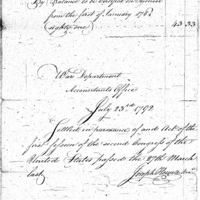 By Balance to be
from the first of January 178
eighty one
43 33
War Department
Accountants Office
July 23d 1792
Settled in pursuance of and Act of the
first session of the second Congress of the
United States passed the 27th March
last
Joseph Howell